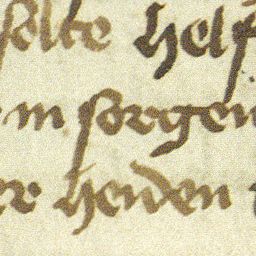 ſolte helf
in ſorgen
er heiden